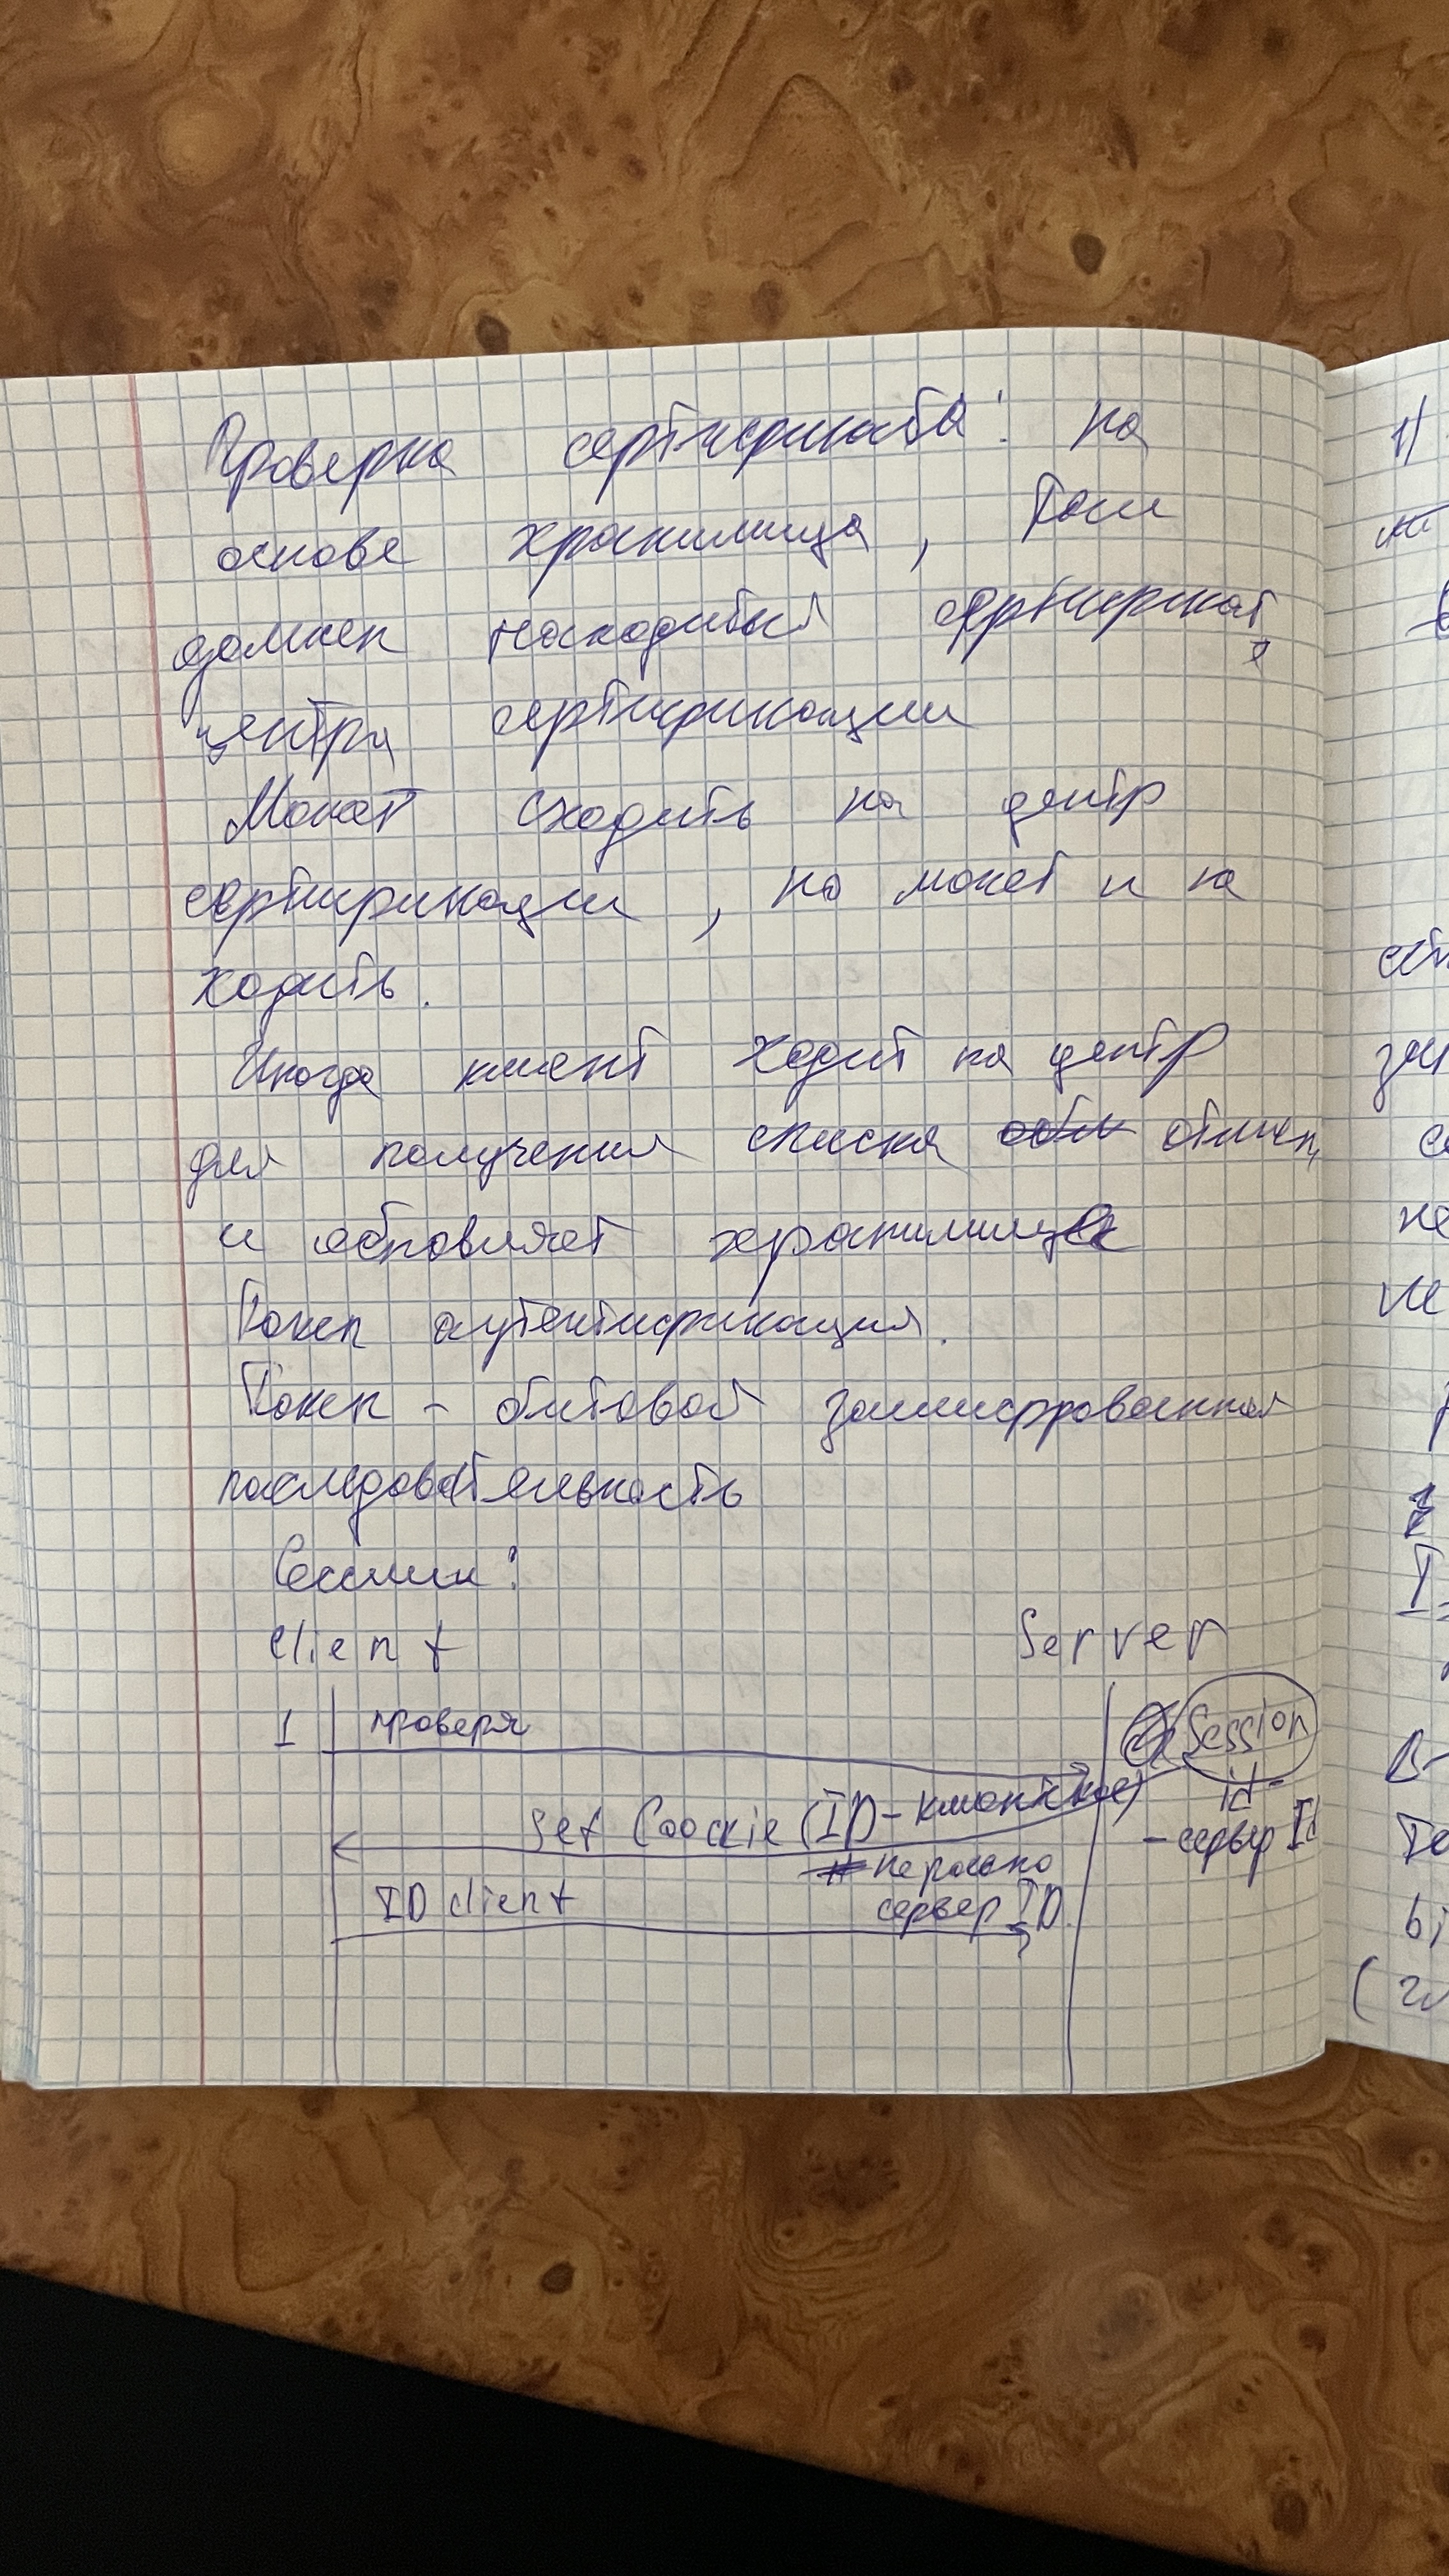 Проверка сертификата: на
основе хранилища, там
должен находиться сертификат
центра сертификации
Может сходить на центр
сертификации, но может и не
ходить.
Иногда клиент ходит на центр
для получения списка отмен,
и обновляет хранилище
Токен аутентификация.
Токен - битовой зашифрованная
последовательность
Сессии:
Client Server
1 проверя Session
id -
Set Coockie (ID-клиентское) - сервер Id
не равно
ID client сервер ID.